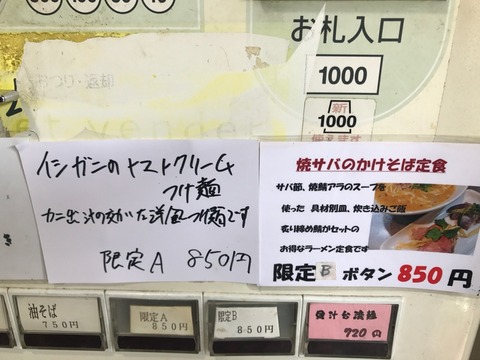 お札入口
1000
おつり・返却
新
1000
使えます
イシガニのトマトクリーム
つけ麺
カニ出汁の効いた洋風つけ麺です
限定A 850円
焼サバのかけそば定食
サバ節、焼鯖アラのスープを
使った 具材別皿、炊き込みご飯
炙り締め鯖がセットの
お得なラーメン定食です
限定 B ボタン 850 円
油そば
750円
限定A
850円
限定B
850円
台湾
720円